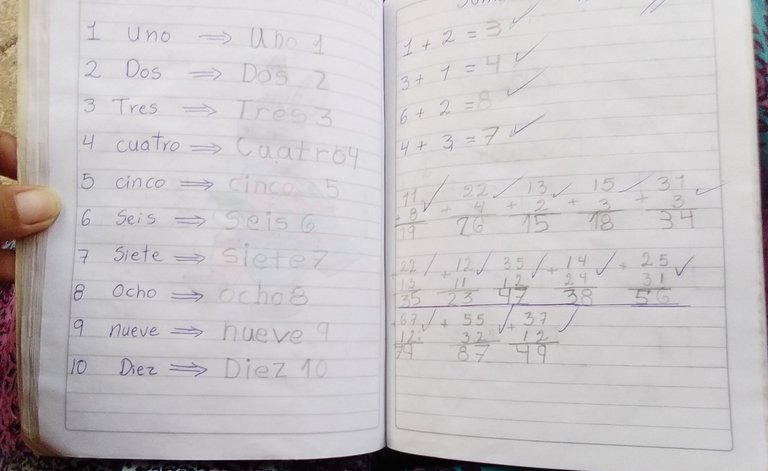 1 Uno ⇒ Uno 1
2 Dos ⇒ Dos 2
3 Tres ⇒ Tres 3
4 cuatro ⇒ Cuatro 4
5 cinco ⇒ cinco 5
6 Seis ⇒ Seis 6
7 Siete ⇒ Siete 7
8 Ocho ⇒ ocho 8
9 nueve ⇒ nueve 9
10 Diez ⇒ Diez 10
1 + 2 = 3 ✓
3 + 1 = 4 ✓
6 + 2 = 8 ✓
4 + 3 = 7 ✓
11 ✓ 22 ✓ 13 ✓ 15 ✓ 31 ✓
+ 8 + 4 + 2 + 3 + 3
19 26 15 18 34
22 ✓ 12 ✓ 35 ✓ 14 ✓ 25 ✓
+ 13 + 11 + 12 + 24 + 31
35 23 47 38 56
67 ✓ 55 ✓ 37 ✓
+ 12 + 32 + 12
79 87 49